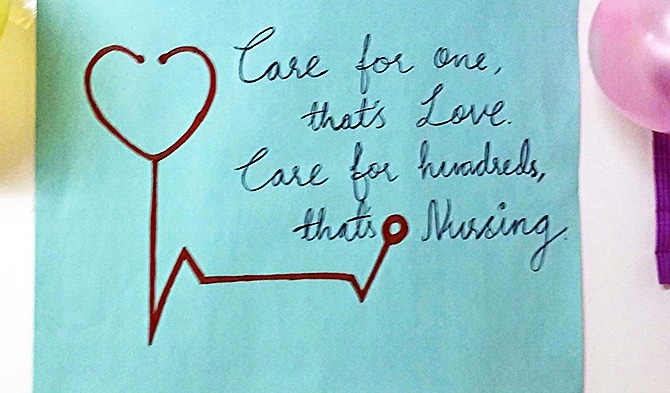 Care for one,
that's Love.
Care for hundreds,
that's Nursing.